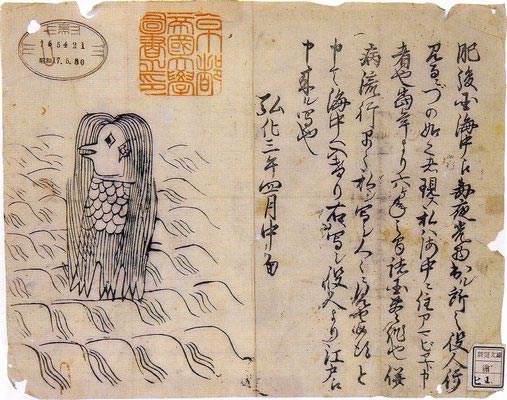 肥後国海中え毎夜光物出ル所之役人行
見るニづの如之者現ス私ハ海中ニ住アマビヱト申
者也当年より六ケ年之間諸国豊作也併
病流行早々私シ写シ人々ニ見セ候得と
申て海中へ入けり右ハ写シ役人より江戸え
申来ル写也
弘化三年四月中旬
京都
帝國大學
圖書之印
昭和17.5.30
新聞文庫